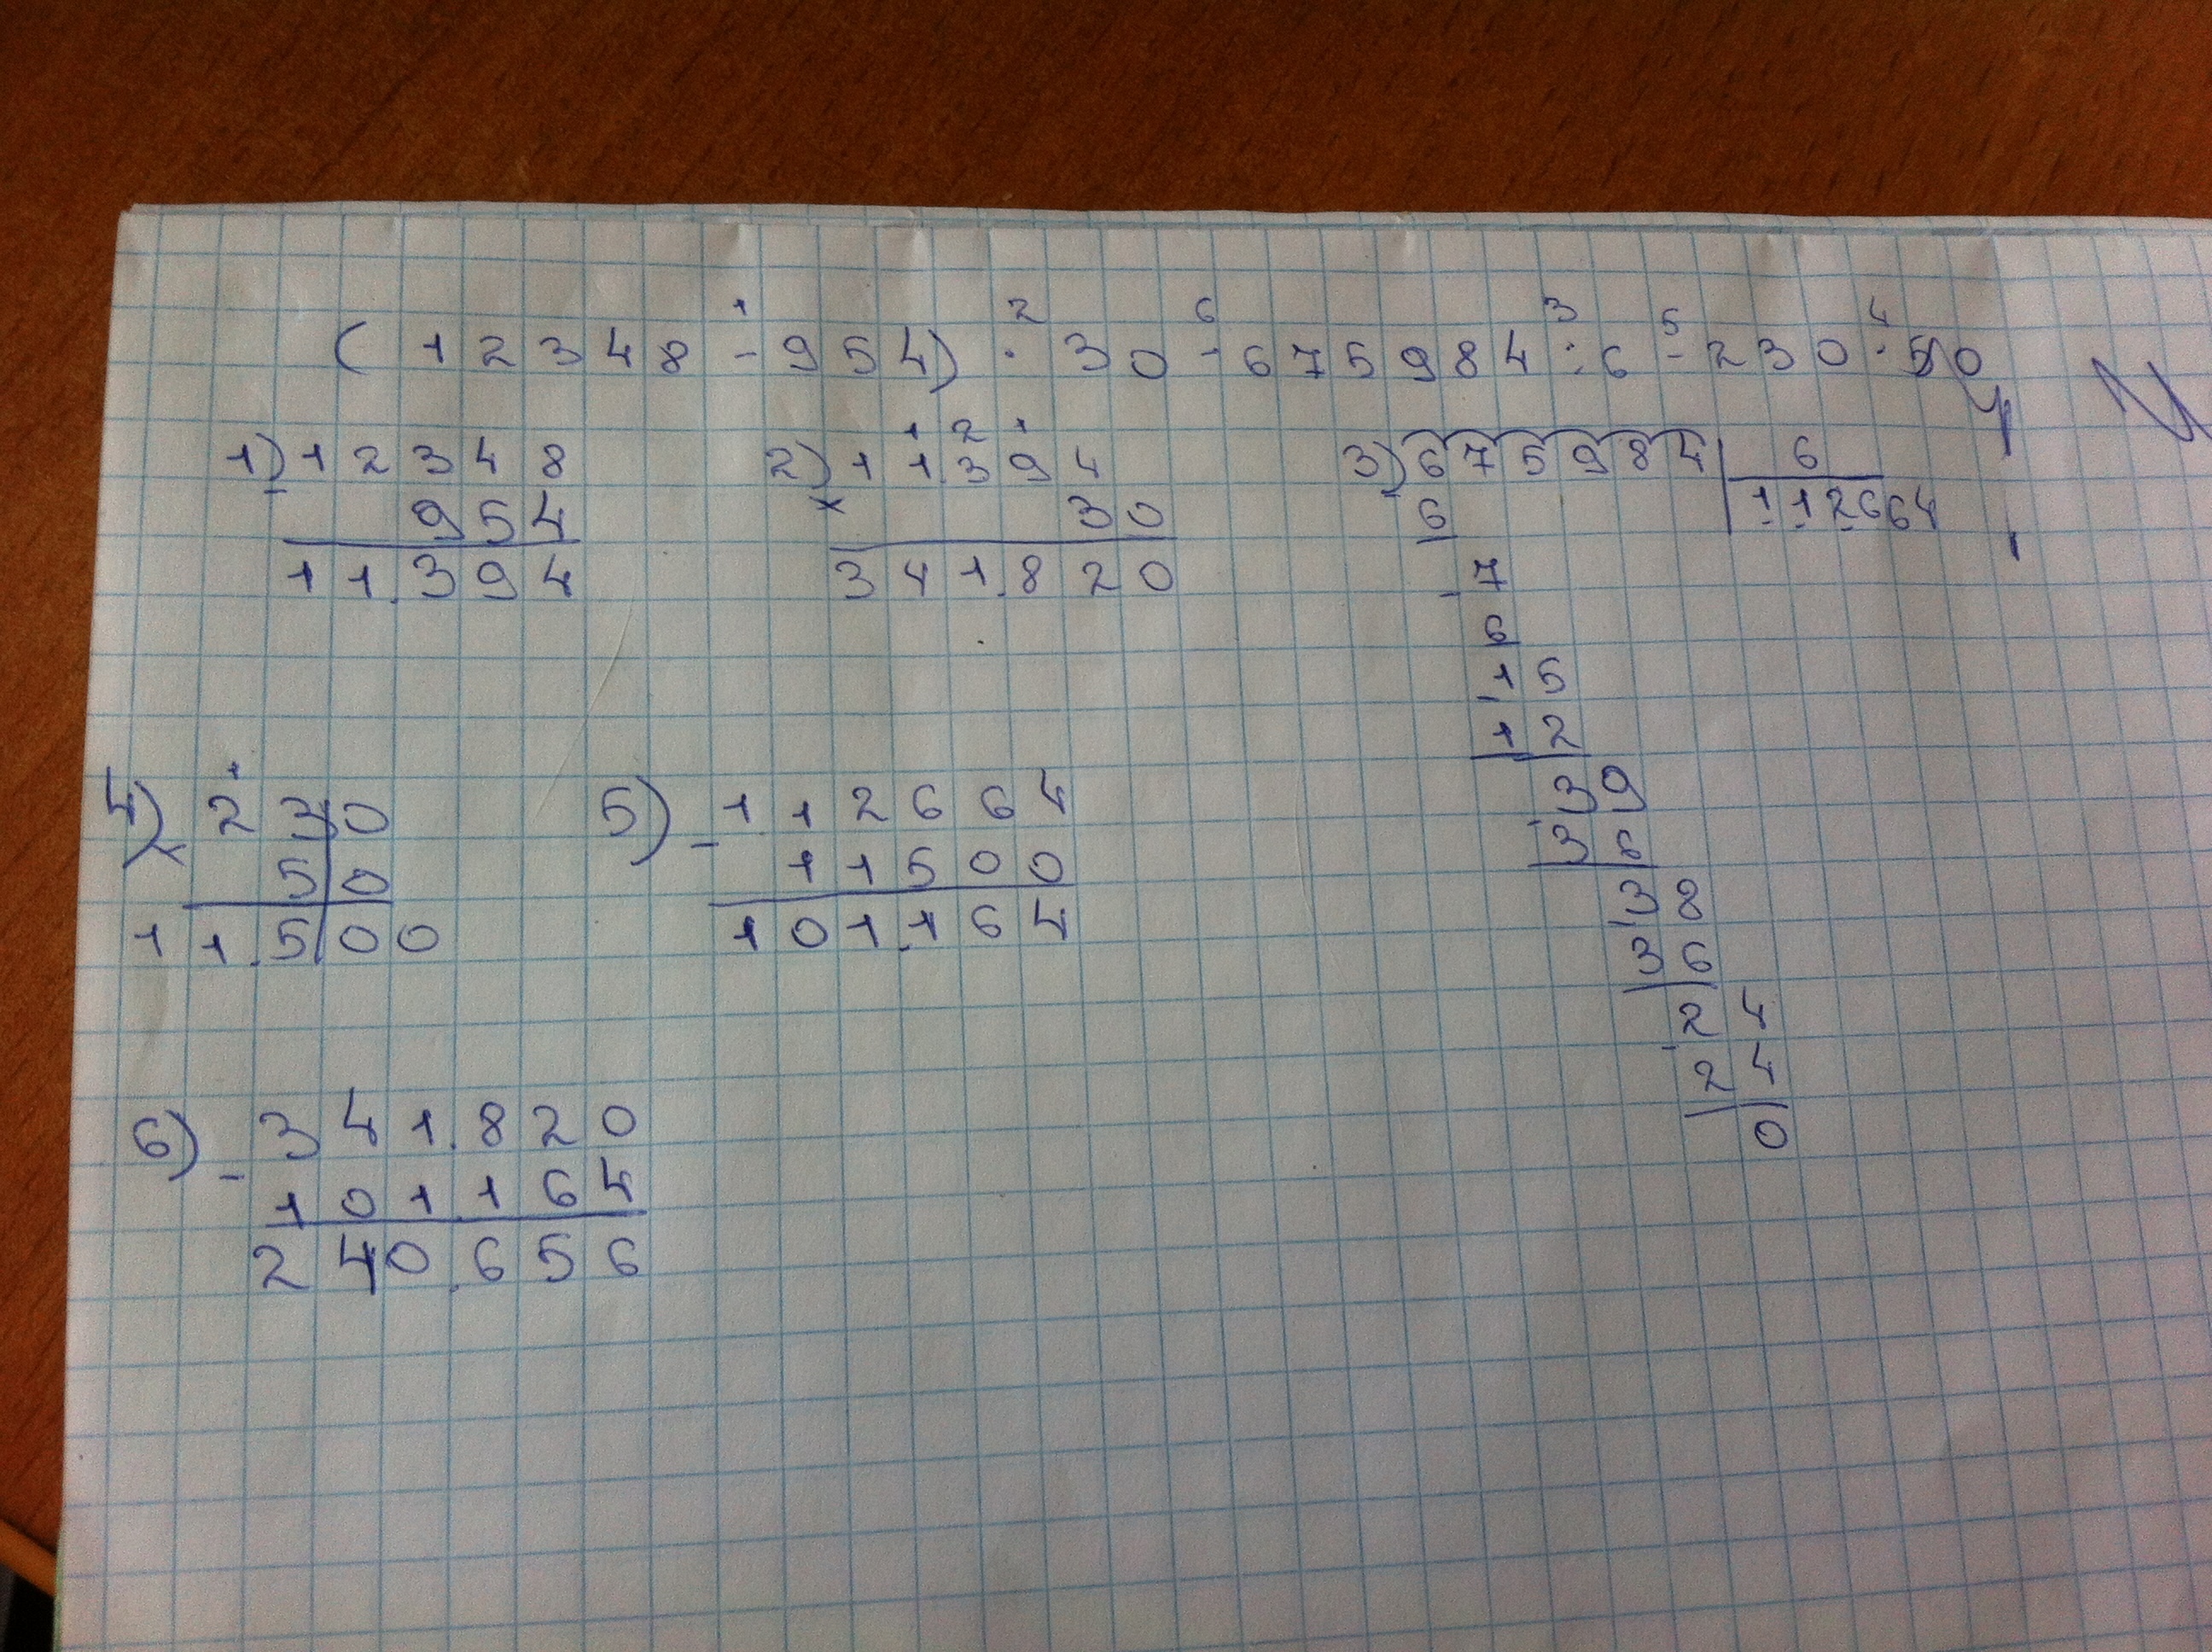 1 2 6 3 5 4
( 1 2 3 4 8 - 9 5 4 ) · 3 0 - 6 7 5 9 8 4 : 6 - 2 3 0 · 5 0
1) 1 2 3 4 8
-
9 5 4
1 1.3 9 4
1 2 1
2) 1 1.3 9 4
x
3 0
3 4 1.8 2 0
3) 6 7 5 9 8 4 6
- 6 1 1 2 6 6 4
- 7
6
1 5
-
1 2
- 3 9
3 6
- 3 8
3 6
- 2 4
2 4
0
1
4) 2 3 0
x
5 0
1 1.5 0 0
5) - 1 1 2 6 6 4
1 1 5 0 0
1 0 1.1 6 4
6) - 3 4 1.8 2 0
1 0 1.1 6 4
2 4 0.6 5 6